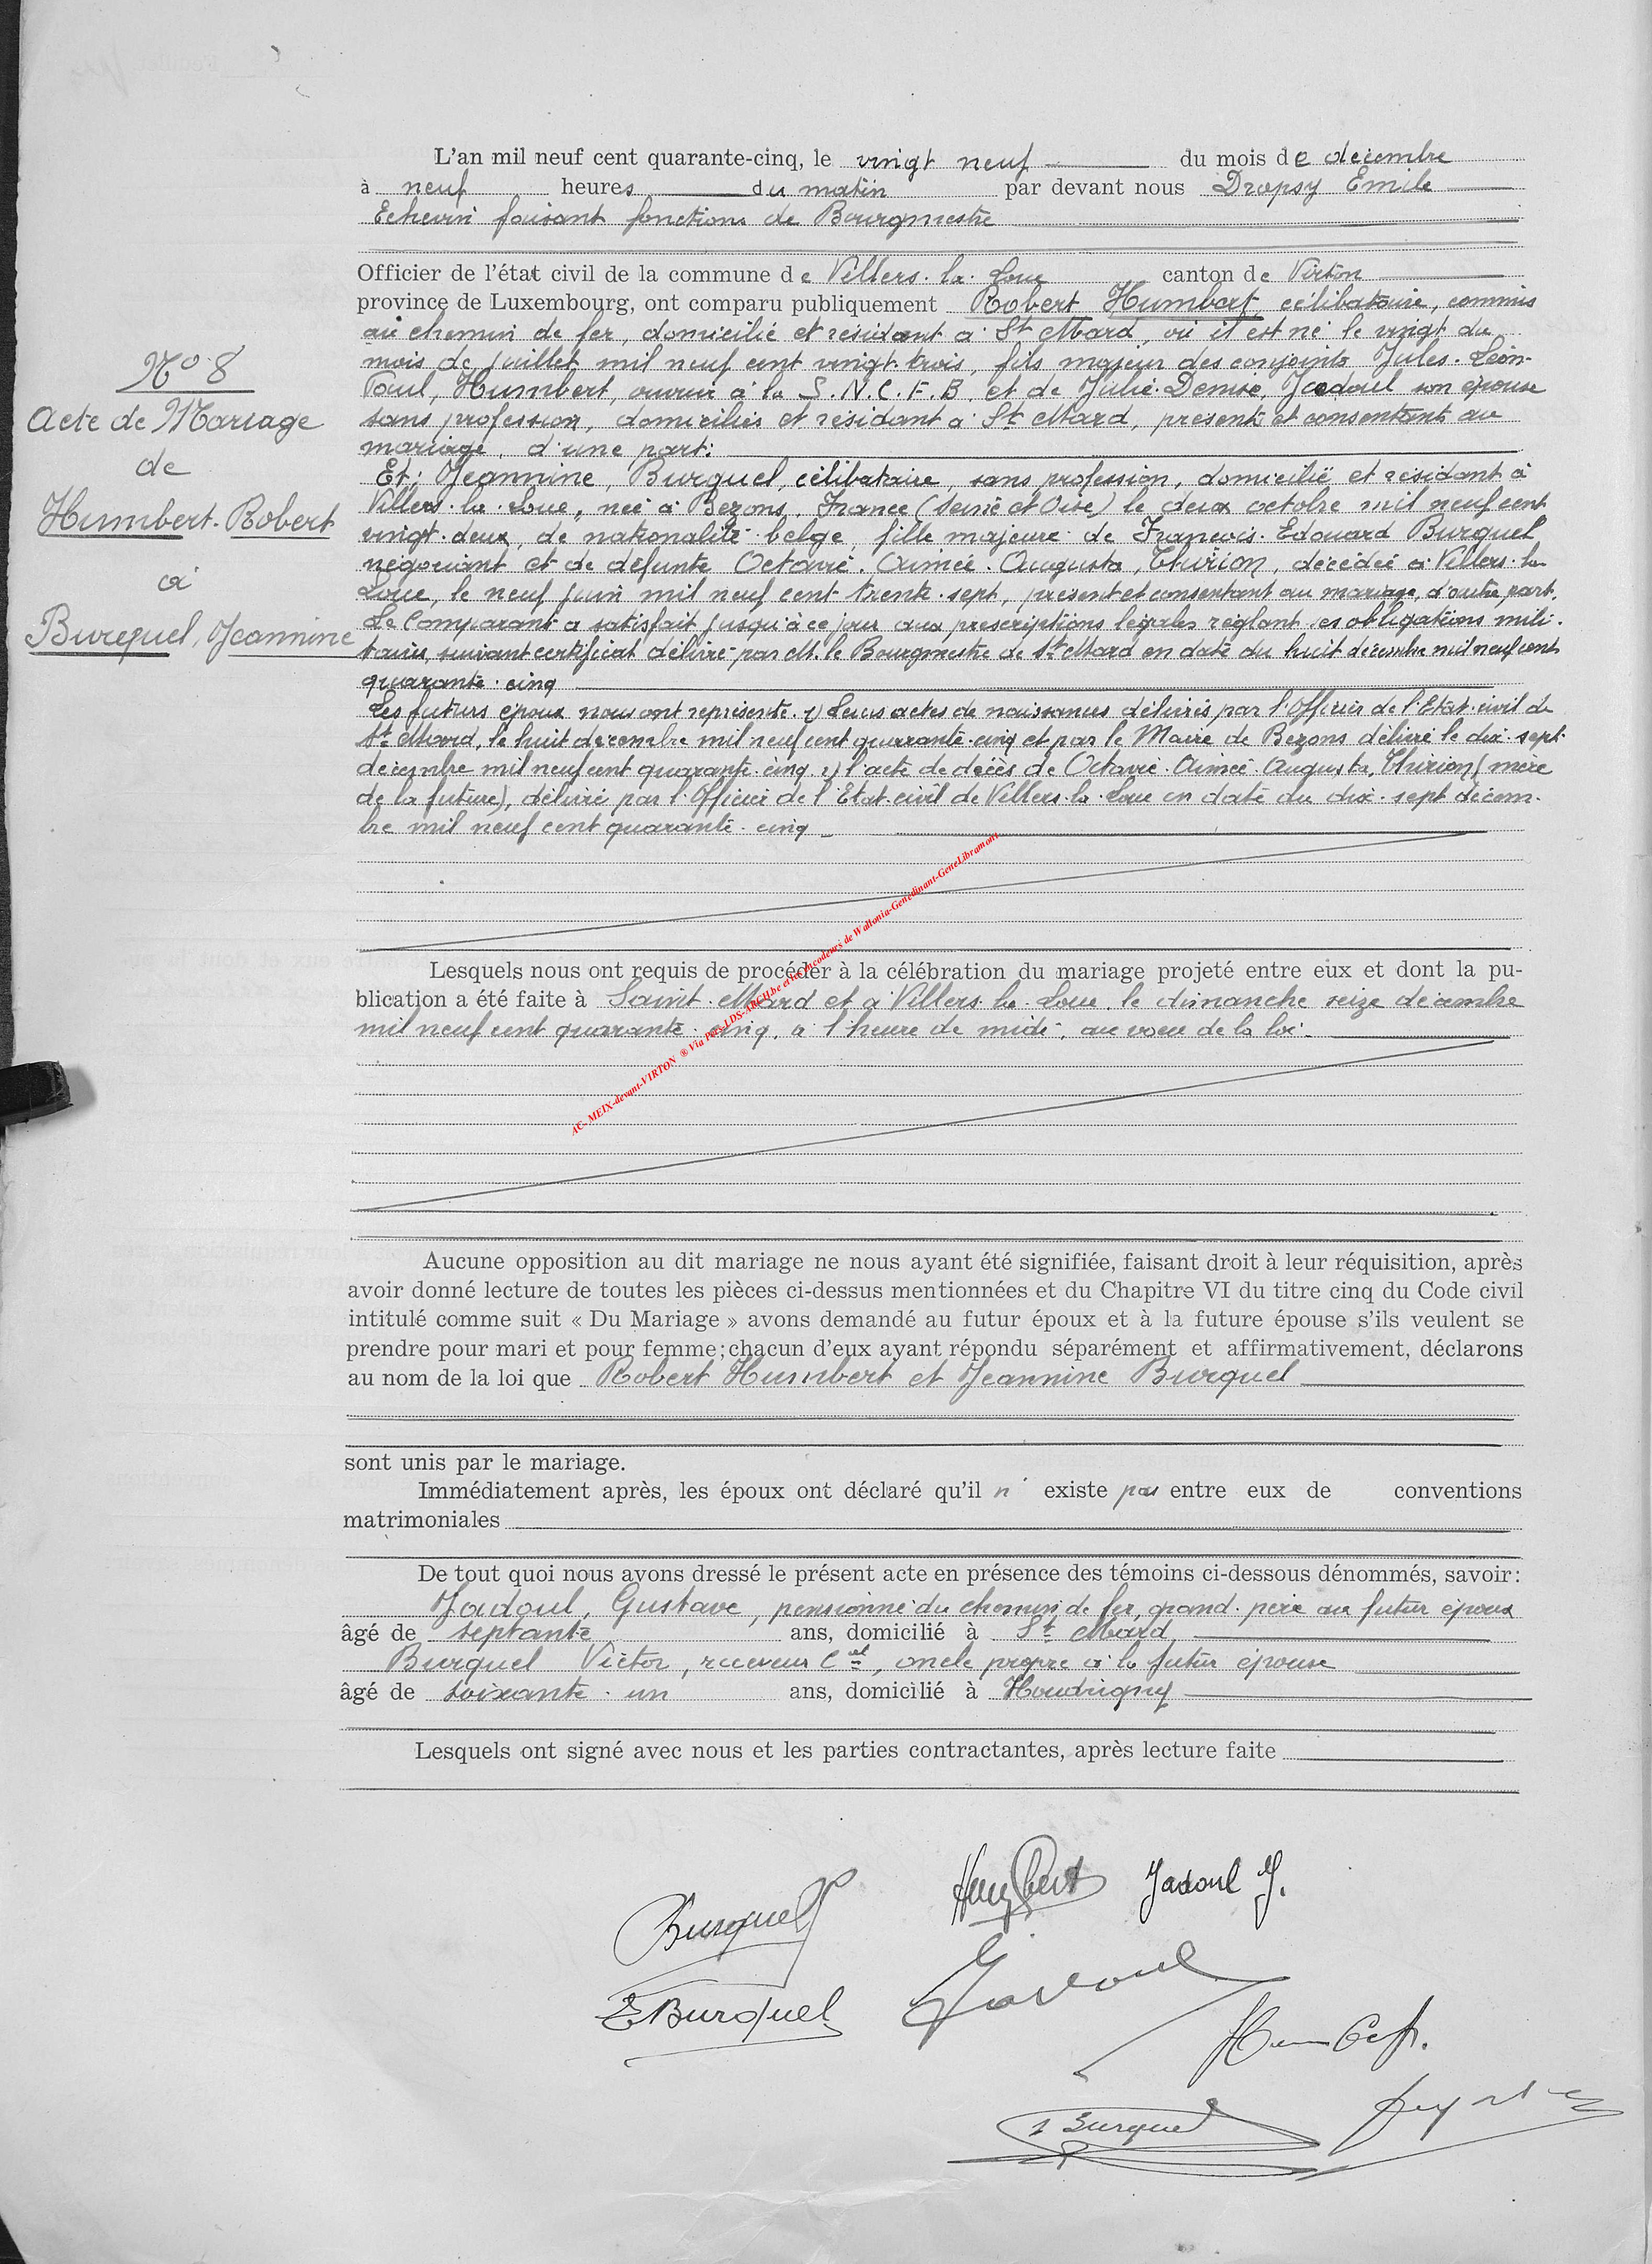 L'an mil neuf cent quarante-cinq, le vingt neuf du mois de décembre
à neuf heures du matin par devant nous Dropsy Emile
Echevin faisant fonctions de Bourgmestre
Officier de l'état civil de la commune de Villers-la-Loue canton de Virton
province de Luxembourg, ont comparu publiquement Robert Humbert, célibataire, commis
au chemin de fer, domicilié et résidant à St Mard, où il est né le vingt du
mois de juillet mil neuf cent vingt trois, fils majeur des conjoints Jules-Léon-
Paul, Humbert, ouvrier à la S.N.C.F.B. et de Julie-Denise, Jadoul son épouse
sans profession, domiciliés et résidant à St Mard, présents et consentants au
mariage, d'une part:
Et: Jeannine, Burquel, célibataire, sans profession, domicilié et résidant à
Villers-la-Loue, née à Bezons, France (Seine et Oise) le deux octobre mil neuf cent
vingt-deux, de nationalité belge, fille majeure de François-Edouard Burquel
négociant et de défunte Octavie-Aimée-Augusta, Thirion, décédée à Villers-la-
Loue, le neuf juin mil neuf cent trente-sept, présent et consentant au mariage, d'autre part.
Le Comparant a satisfait jusqu'à ce jour aux prescriptions légales réglant ses obligations mili-
taires, suivant certificat délivré par M. le Bourgmestre de St Mard en date du huit décembre mil neuf cent
quarante-cinq
Les futurs époux nous ont représenté. 1) Leurs actes de naissances délivrés par l'Officier de l'Etat-civil de
St Mard, le huit décembre mil neuf cent quarante-cinq et par le Maire de Bezons délivré le dix-sept
décembre mil neuf cent quarante-cinq. 2) l'acte de décès de Octavie-Aimée-Augusta, Thirion (mère
de la future), délivré par l'Officier de l'Etat-civil de Villers-la-Loue en date du dix-sept décem-
bre mil neuf cent quarante-cinq
N° 8
Acte de Mariage
de
Humbert-Robert
à
Burquel, Jeannine
AC- MEIX-devant-VIRTON ® Via Pays-LDS-ARCH.be et les encodeurs de Wallonia-Genedinant-GeneLibramont
Lesquels nous ont requis de procéder à la célébration du mariage projeté entre eux et dont la pu-
blication a été faite à Saint-Mard et à Villers-la-Loue, le dimanche seize décembre
mil neuf cent quarante-cinq, à l'heure de midi, au vœu de la loi.
Aucune opposition au dit mariage ne nous ayant été signifiée, faisant droit à leur réquisition, après
avoir donné lecture de toutes les pièces ci-dessus mentionnées et du Chapitre VI du titre cinq du Code civil
intitulé comme suit « Du Mariage » avons demandé au futur époux et à la future épouse s'ils veulent se
prendre pour mari et pour femme; chacun d'eux ayant répondu séparément et affirmativement, déclarons
au nom de la loi que Robert Humbert et Jeannine Burquel
sont unis par le mariage.
Immédiatement après, les époux ont déclaré qu'il n' existe pas entre eux de conventions
matrimoniales
De tout quoi nous avons dressé le présent acte en présence des témoins ci-dessous dénommés, savoir:
Jadoul, Gustave, pensionné du chemin de fer, grand-père au futur époux
âgé de septante ans, domicilié à St Mard
Burquel Victor, receveur Cal, oncle propre à la futur épouse
âgé de soixante-un ans, domicilié à Houdrigny
Lesquels ont signé avec nous et les parties contractantes, après lecture faite
Burquel Humbert Jadoul J.
E Burquel Jadoul
Humbert.
Burquel